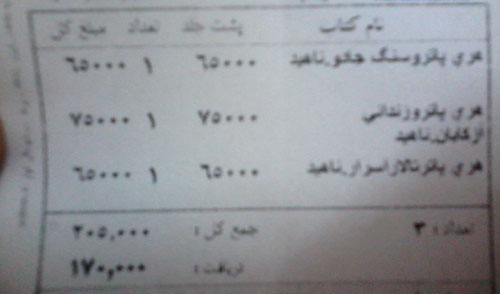 نام کتاب پشت جلد تعداد مبلغ کل
هری پاتروسنگ جادو.ناهید ۶۵۰۰۰ ۱ ۶۵۰۰۰
هری پاتروزندانی ۷۵۰۰۰ ۱ ۷۵۰۰۰
ازکابان.ناهید
هری پاترتالاراسرار.ناهید ۶۵۰۰۰ ۱ ۶۵۰۰۰
تعداد : ۳ جمع کل : ۲۰۵,۰۰۰
دریافت : ۱۷۰,۰۰۰